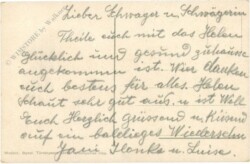 Lieber Schwager u. Schwägerin
Theile euch mit das Helen
Glücklich und gesund zuhause
angekommen ist. Wir danken
euch bestens für alles Helen
schaut sehr gut aus. u. ist Voll
Euch Herzlich grüssend u. Küssend
auf ein baldiges Wiedersehn
Jani Ilonka u. Luise.